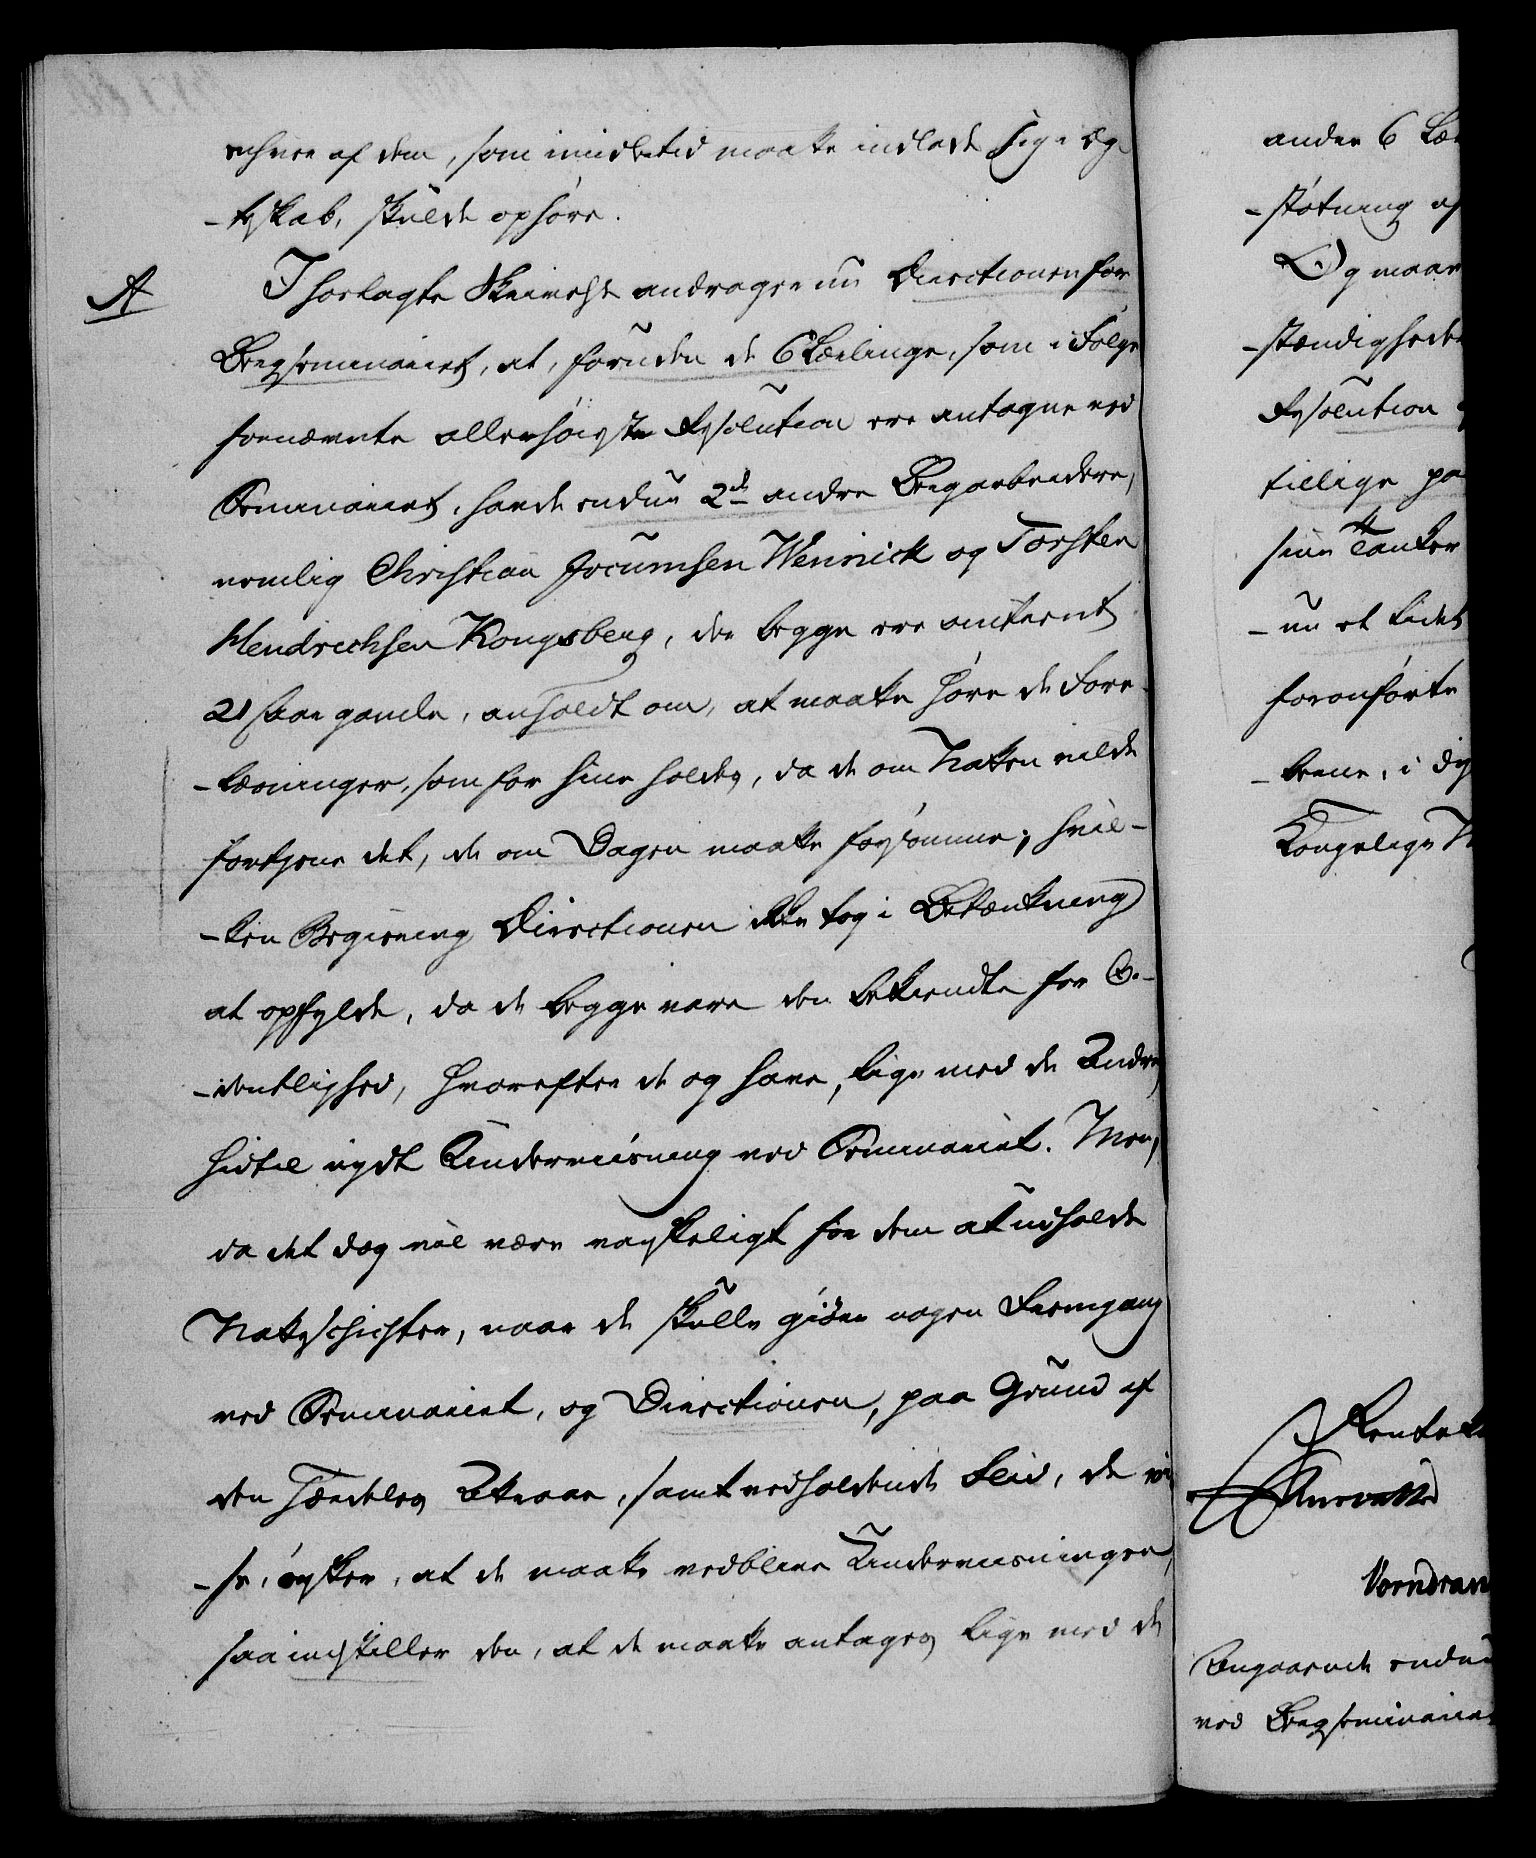 enhver af dem, som imidlertid maatte indlade sig i Æg-
-teskab, skulde ophøre.
A
I hoslagte Skrivelse andrager nu Directionen for
Bergseminariet, at, foruden de 6 Lærlinge, som i Følge
fornævnte allerhøieste Resolution ere antagne ved
Seminariet, havde endnu 2de andre Bergarbeidere,
nemlig Christian Jocumsen Wennick og Torsten
Hendrichsen Kongsberg, der begge ere omtrent
21 Aar gamle, anholdt om, at maatte høre de Fore-
-læsninger, som for hine holdes, da de om Natten vilde
fortjene det, de om Dagen maatte forsømme; hvil-
-ken Begiering Directionen ikke tog i Betænkning
at opfylde, da de begge vare den bekiendte for Or-
-dentlighed, hvorefter de og have, lige med de Andre,
hidtil nydt Underviisning ved Seminariet. Men,
da det dog vil være vanskeligt for dem at udholde
Natteschichter, naar de skulle giøre nogen Fremgang
ved Seminariet, og Directionen, paa Grund af
den Færdelses Attraae, samt vedholdende Flid, de vi-
-se, ønsker, at de maatte vedblive Underviisningen,
saa indstiller den, at de maatte antages lige med de
anden 6 Læ
-støtning af
Og naar
-stændigheder
Resolution
tillige pa
sine Tanker
-nu et lidet
foranførte
-lerne, i dy
Kongelige
Rentek
Vorndran
Angaaende endnu
ved Bergseminariet